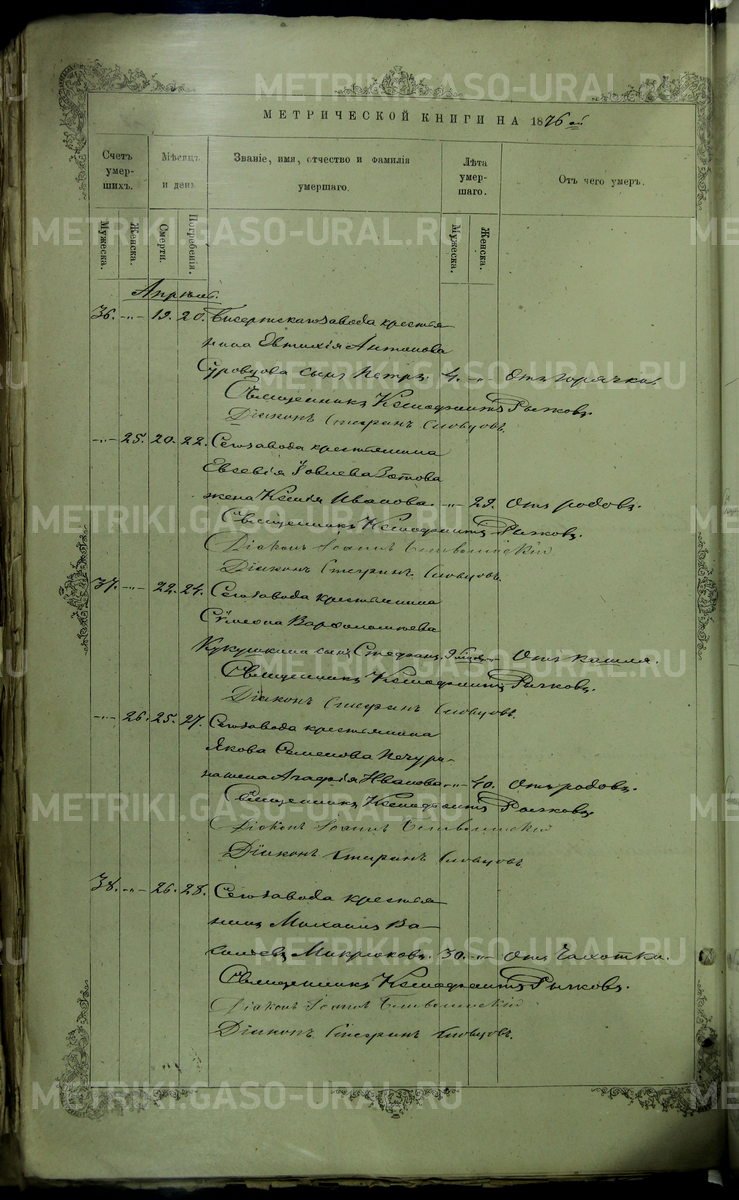 METRIKI.GASO-URAL.RU
МЕТРИЧЕСКОЙ КНИГИ НА 1876ой
Счетъ умер-шихъ.
Мѣсяцъ и день
Званіе, имя, отчество и фамилія умершаго.
Лѣта умер-шаго.
Отъ чего умеръ.
Мужеска.
Женска.
Смерти.
Погребенія.
Мужеска.
Женска.
Апрѣль.
36. -"- 19. 20. Бисертскаго завода крестья
нина Евтихія Антонова
Суровцова сынъ Петръ. 4. -"- Отъ горячки.
Священникъ Ксенофонтъ Рыжковъ.
Діаконъ Стефанъ Словцовъ.
-"- 25. 20. 22. Сего завода крестьянина
Евсевія Іовлева Зотова
жена Ксенія Иванова. -"- 29. Отъ родовъ.
Священникъ Ксенофонтъ Рыжковъ.
Діаконъ Іоаннъ
Діаконъ Стефанъ Словцовъ.
37. -"- 22. 24. Сего завода крестьянина
Сѵмеона Варфоломеева
Кукушкина сынъ Стефанъ. Отъ кашля.
Священникъ Ксенофонтъ Рыжковъ.
Діаконъ Стефанъ Словцовъ.
-"- 26. 25. 27. Сего завода крестьянина
Якова Семенова
жена Агафія Иванова -"- 40. Отъ родовъ.
Священникъ Ксенофонтъ Рыжковъ
Діаконъ Іоаннъ
Діаконъ Стефанъ Словцовъ
38. -"- 26. 28. Сего завода крестья
нинъ Михаилъ Ва-
сильевъ Микрюковъ. 30. -"- Отъ чахотки.
Священникъ Ксенофонтъ Рыжковъ.
Діаконъ Іоаннъ
Діаконъ Стефанъ Словцовъ.